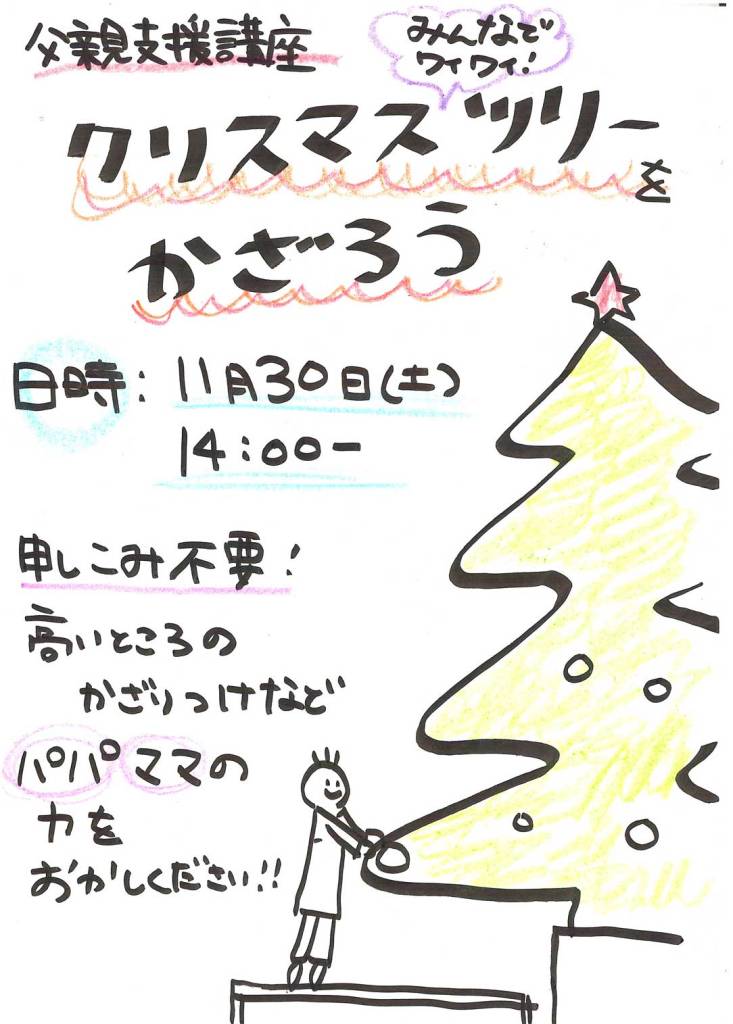 父親支援講座
みんなで
ワイワイ!
クリスマスツリーを
かざろう
日時: 11月30日(土)
14:00-
申しこみ不要!
高いところの
かざりつけなど
パパママの
力を
おかしください!!